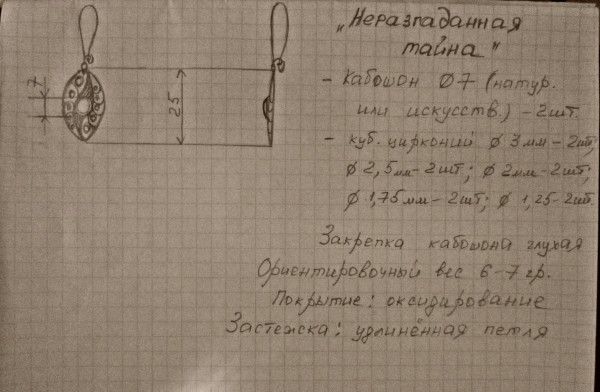 „Неразгаданная
тайна"
- Кабошон ∅7 (натур.
или искусств.) - 2шт.
- куб. цирконий ∅ 3мм - 2шт;
∅ 2,5мм - 2шт; ∅ 2мм - 2шт;
∅ 1,75мм - 2шт; ∅ 1,25 - 2шт.
7
25
Закрепка кабошона глухая
Ориентировочный вес 6-7 гр.
Покрытие: оксидирование
Застежка: удлинённая петля